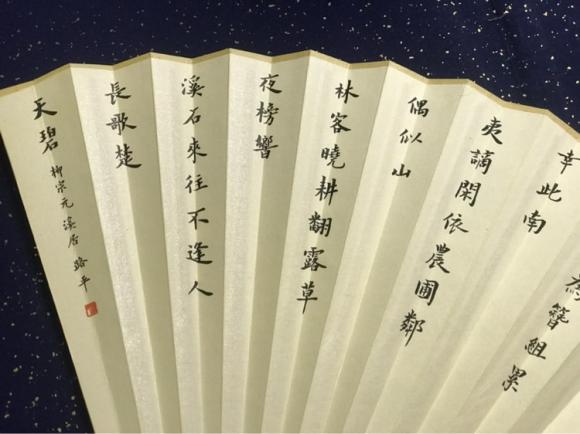 為簪組累
幸此南
夷謫閑依農圃鄰
偶似山
林客曉耕翻露草
夜榜響
溪石來往不逢人
長歌楚
天碧
柳宗元溪居 路平